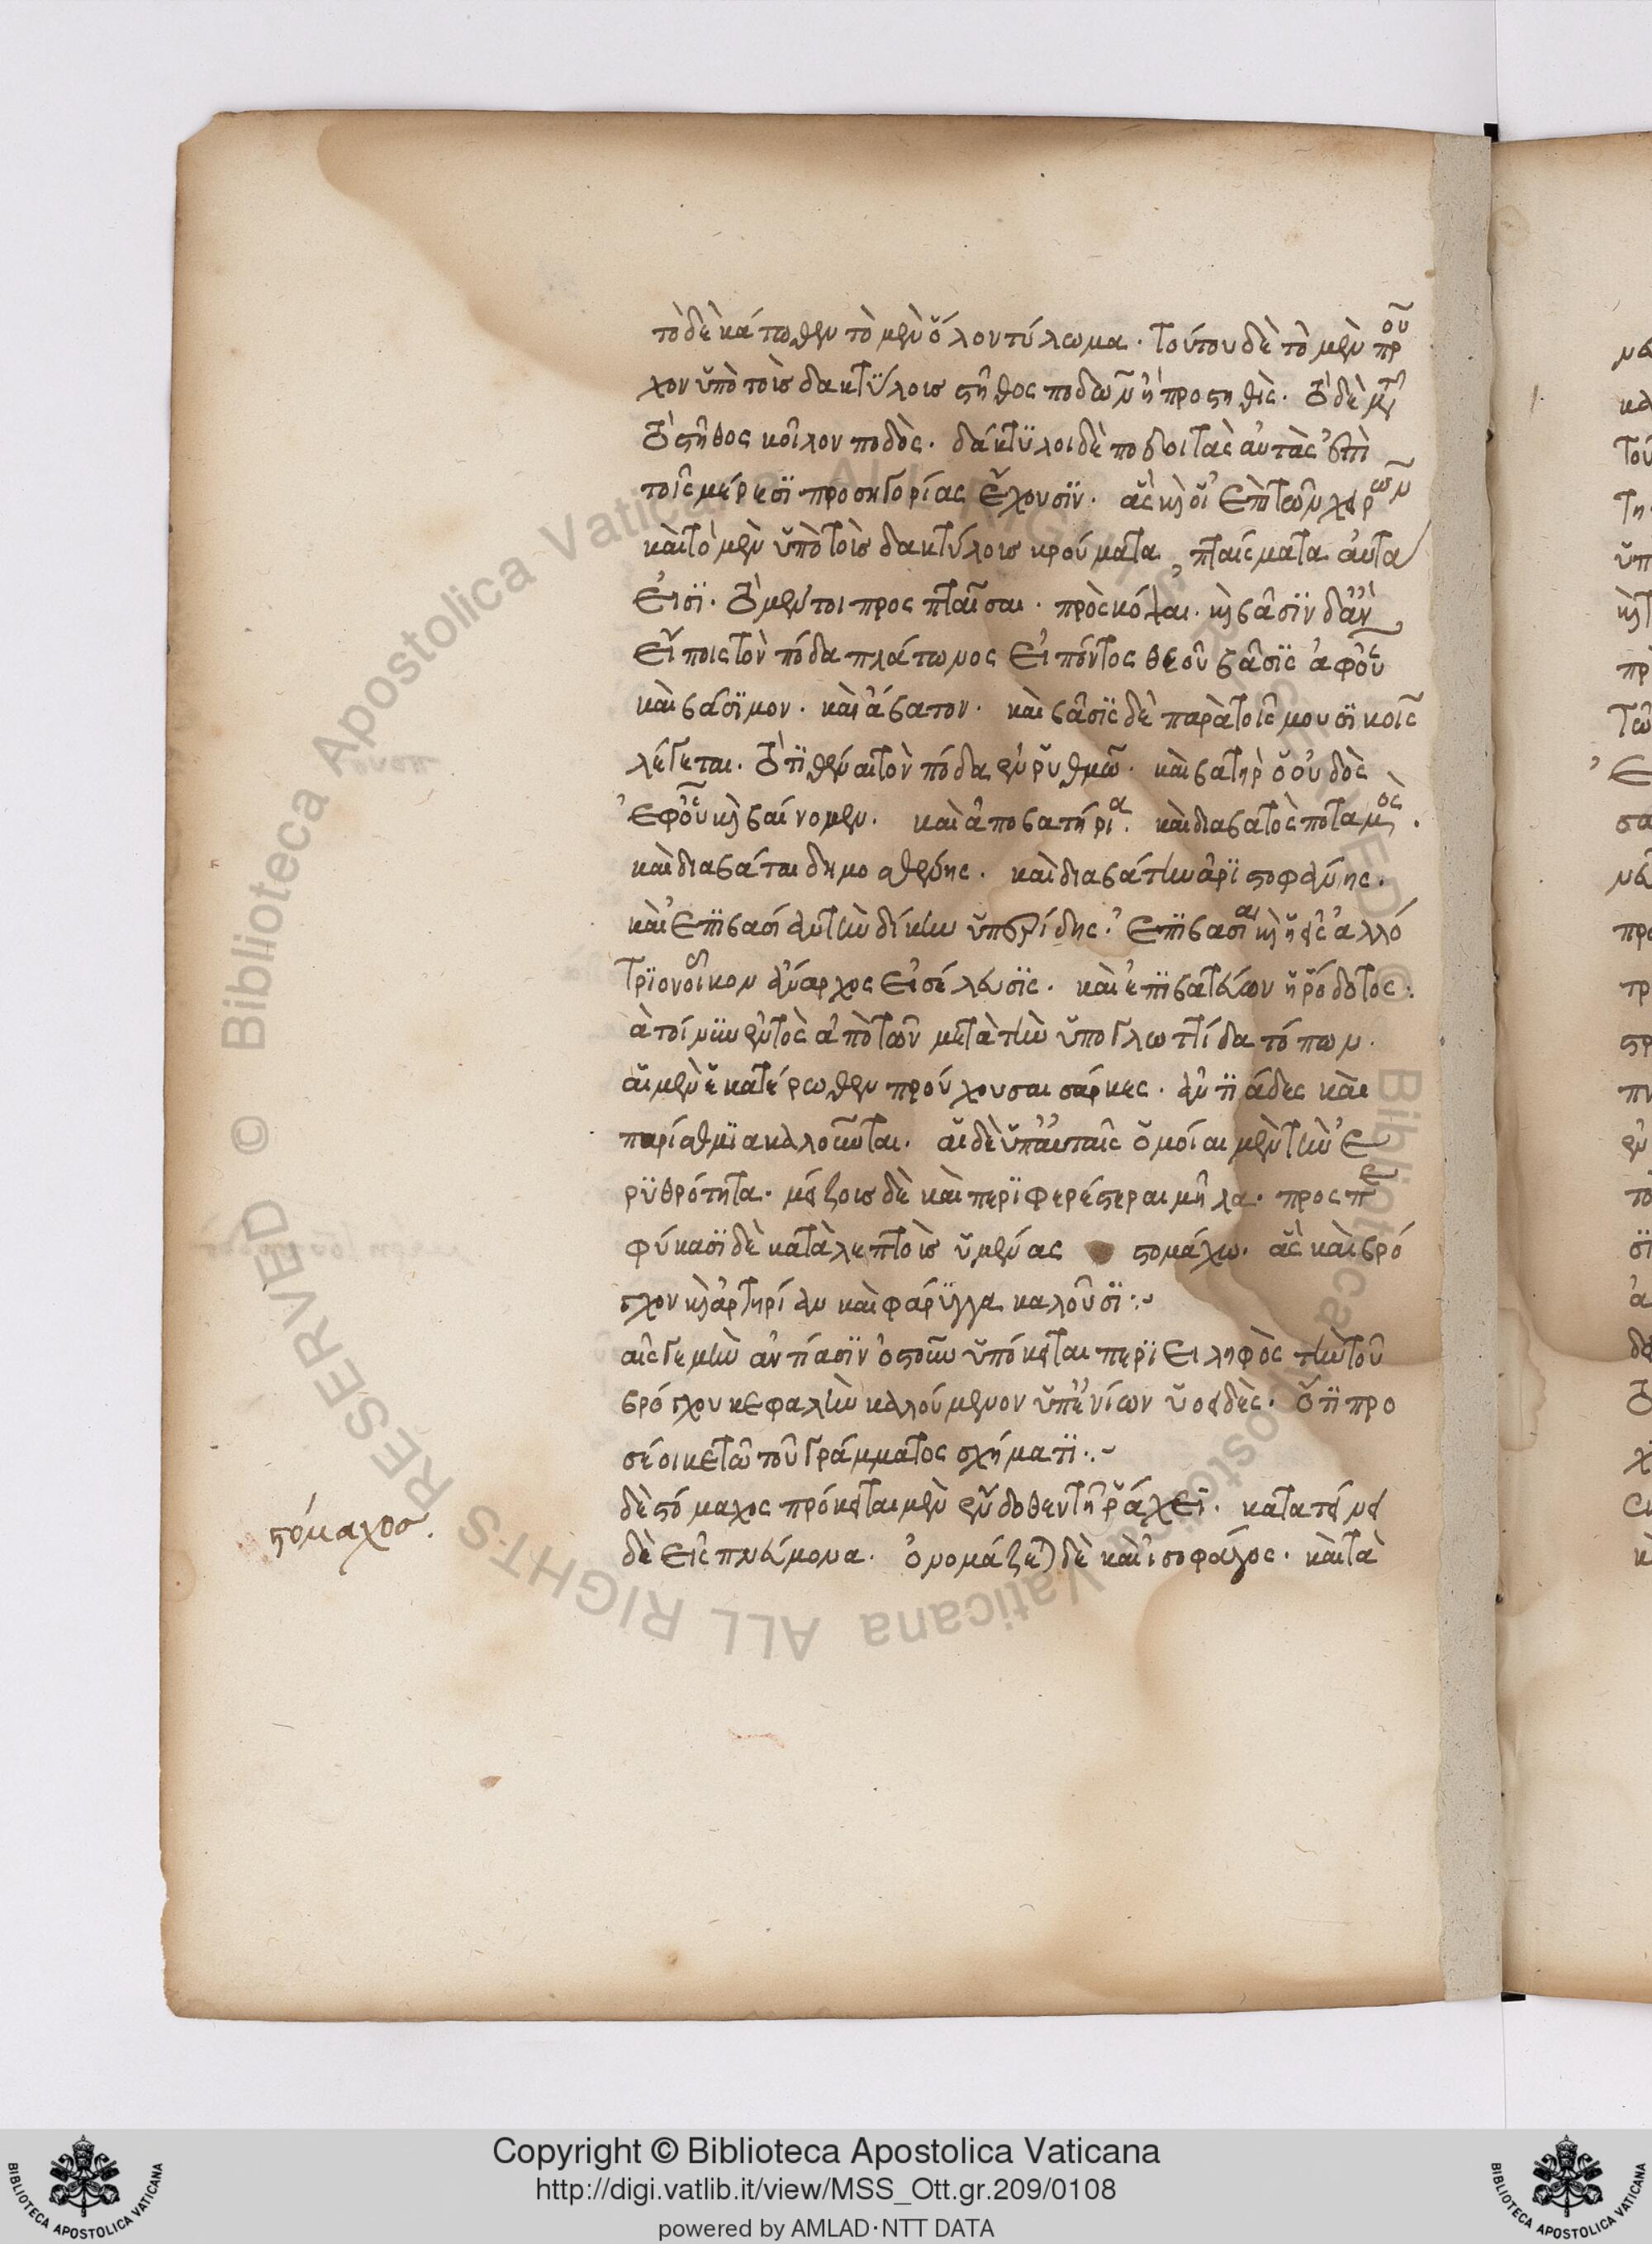 τὸ δὲ κάτωθεν τὸ μὲν ὅλον τύλωμα. τούτου δὲ τὸ μὲν προῦ
χον ὑπὸ τοῖς δακτύλοις στῆθος ποδῶν ἢ προστηθὶς. τὸ δὲ μετὰ
τὸ στῆθος κοῖλον ποδὸς. δάκτυλοι δὲ ποδοι τὰς αὐτὰς ἐπὶ
τοῖς μέρεσι προσηγορίας ἔχουσιν. ἃς καὶ οἱ ἐπὶ τῶν χερῶν
καὶ τὸ μὲν ὑπὸ τοῖς δακτύλοις κρούματα, πταίσματα αὐτὰ
εἰσὶ. τὸ μέντοι προσπταῖσαι. προσκόψαι. καὶ στᾶσιν δ' ἂν
εἴποις τὸν πόδα πλάτωνος εἰπόντος θεοῦ στᾶσις ἀφ' οὗ
καὶ στάσιμον. καὶ ἄστατον. καὶ στᾶσις δὲ παρὰ τοῖς μουσικοῖς
λέγεται. τὸ τιθέναι τὸν πόδα εὐρύθμω. καὶ στατὴρ ὁ οὐδὸς
ἐφ' οὗ καὶ σταίνομεν. καὶ ἀποστατήρια. καὶ διαστατὸς ποταμὸς.
καὶ διαστάται δημοσθένης. καὶ διαστάτην ἀριστοφάνης.
καὶ ἐπιστασίαν τὴν δίκην ὑπερίδης. ἐπιστασίαι καὶ ἡ εἰς ἀλλό
τριον οἶκον ἄναρχος εἰσέλευσις. καὶ ἐπιστατεύων ἡρόδοτος:
ἀ τοίνυν ἐντὸς ἀπὸ τῶν μετὰ τὴν ὑπογλωττίδα τόπων.
αἱ μὲν ἑκατέρωθεν προύχουσαι σάρκες. ἀντιάδες καὶ
παρίσθμια καλοῦνται. αἱ δὲ ὑπ' αὐταῖς ὅμοίαι μὲν τὴν ἐ
ρυθρότητα. μείζοις δὲ καὶ περιφερέστεραι μῆλα. προσπε
φύκασι δὲ κατὰ λεπτοὶς ὑμένας στομάχω. ἃς καὶ βρό
γχον καὶ ἀρτηρίαν καὶ φάρυγγα καλοῦσι:~
αἷς γε μὴν ἀντιάσιν ὀστοῦν ὑπόκειται περιειληφὸς τὴν τοῦ
βρόγχου κεφαλὴν καλούμενον ὑπ' ἐνίων ὑοειδὲς. ὅτι προ
σέοικε τῶ τοῦ γράμματος σχήματι:~
δὲ στόμαχος πρόκειται μὲν ἔνδοθεν τῇ ῥάχει. κατατείνει
δὲ εἰς πνεύμονα. ὀνομάζεται δὲ καὶ ἰσοφάγος. καὶ τὰ
στόμαχος.
Copyright © Biblioteca Apostolica Vaticana
http://digi.vatlib.it/view/MSS_Ott.gr.209/0108
powered by AMLAD·NTT DATA